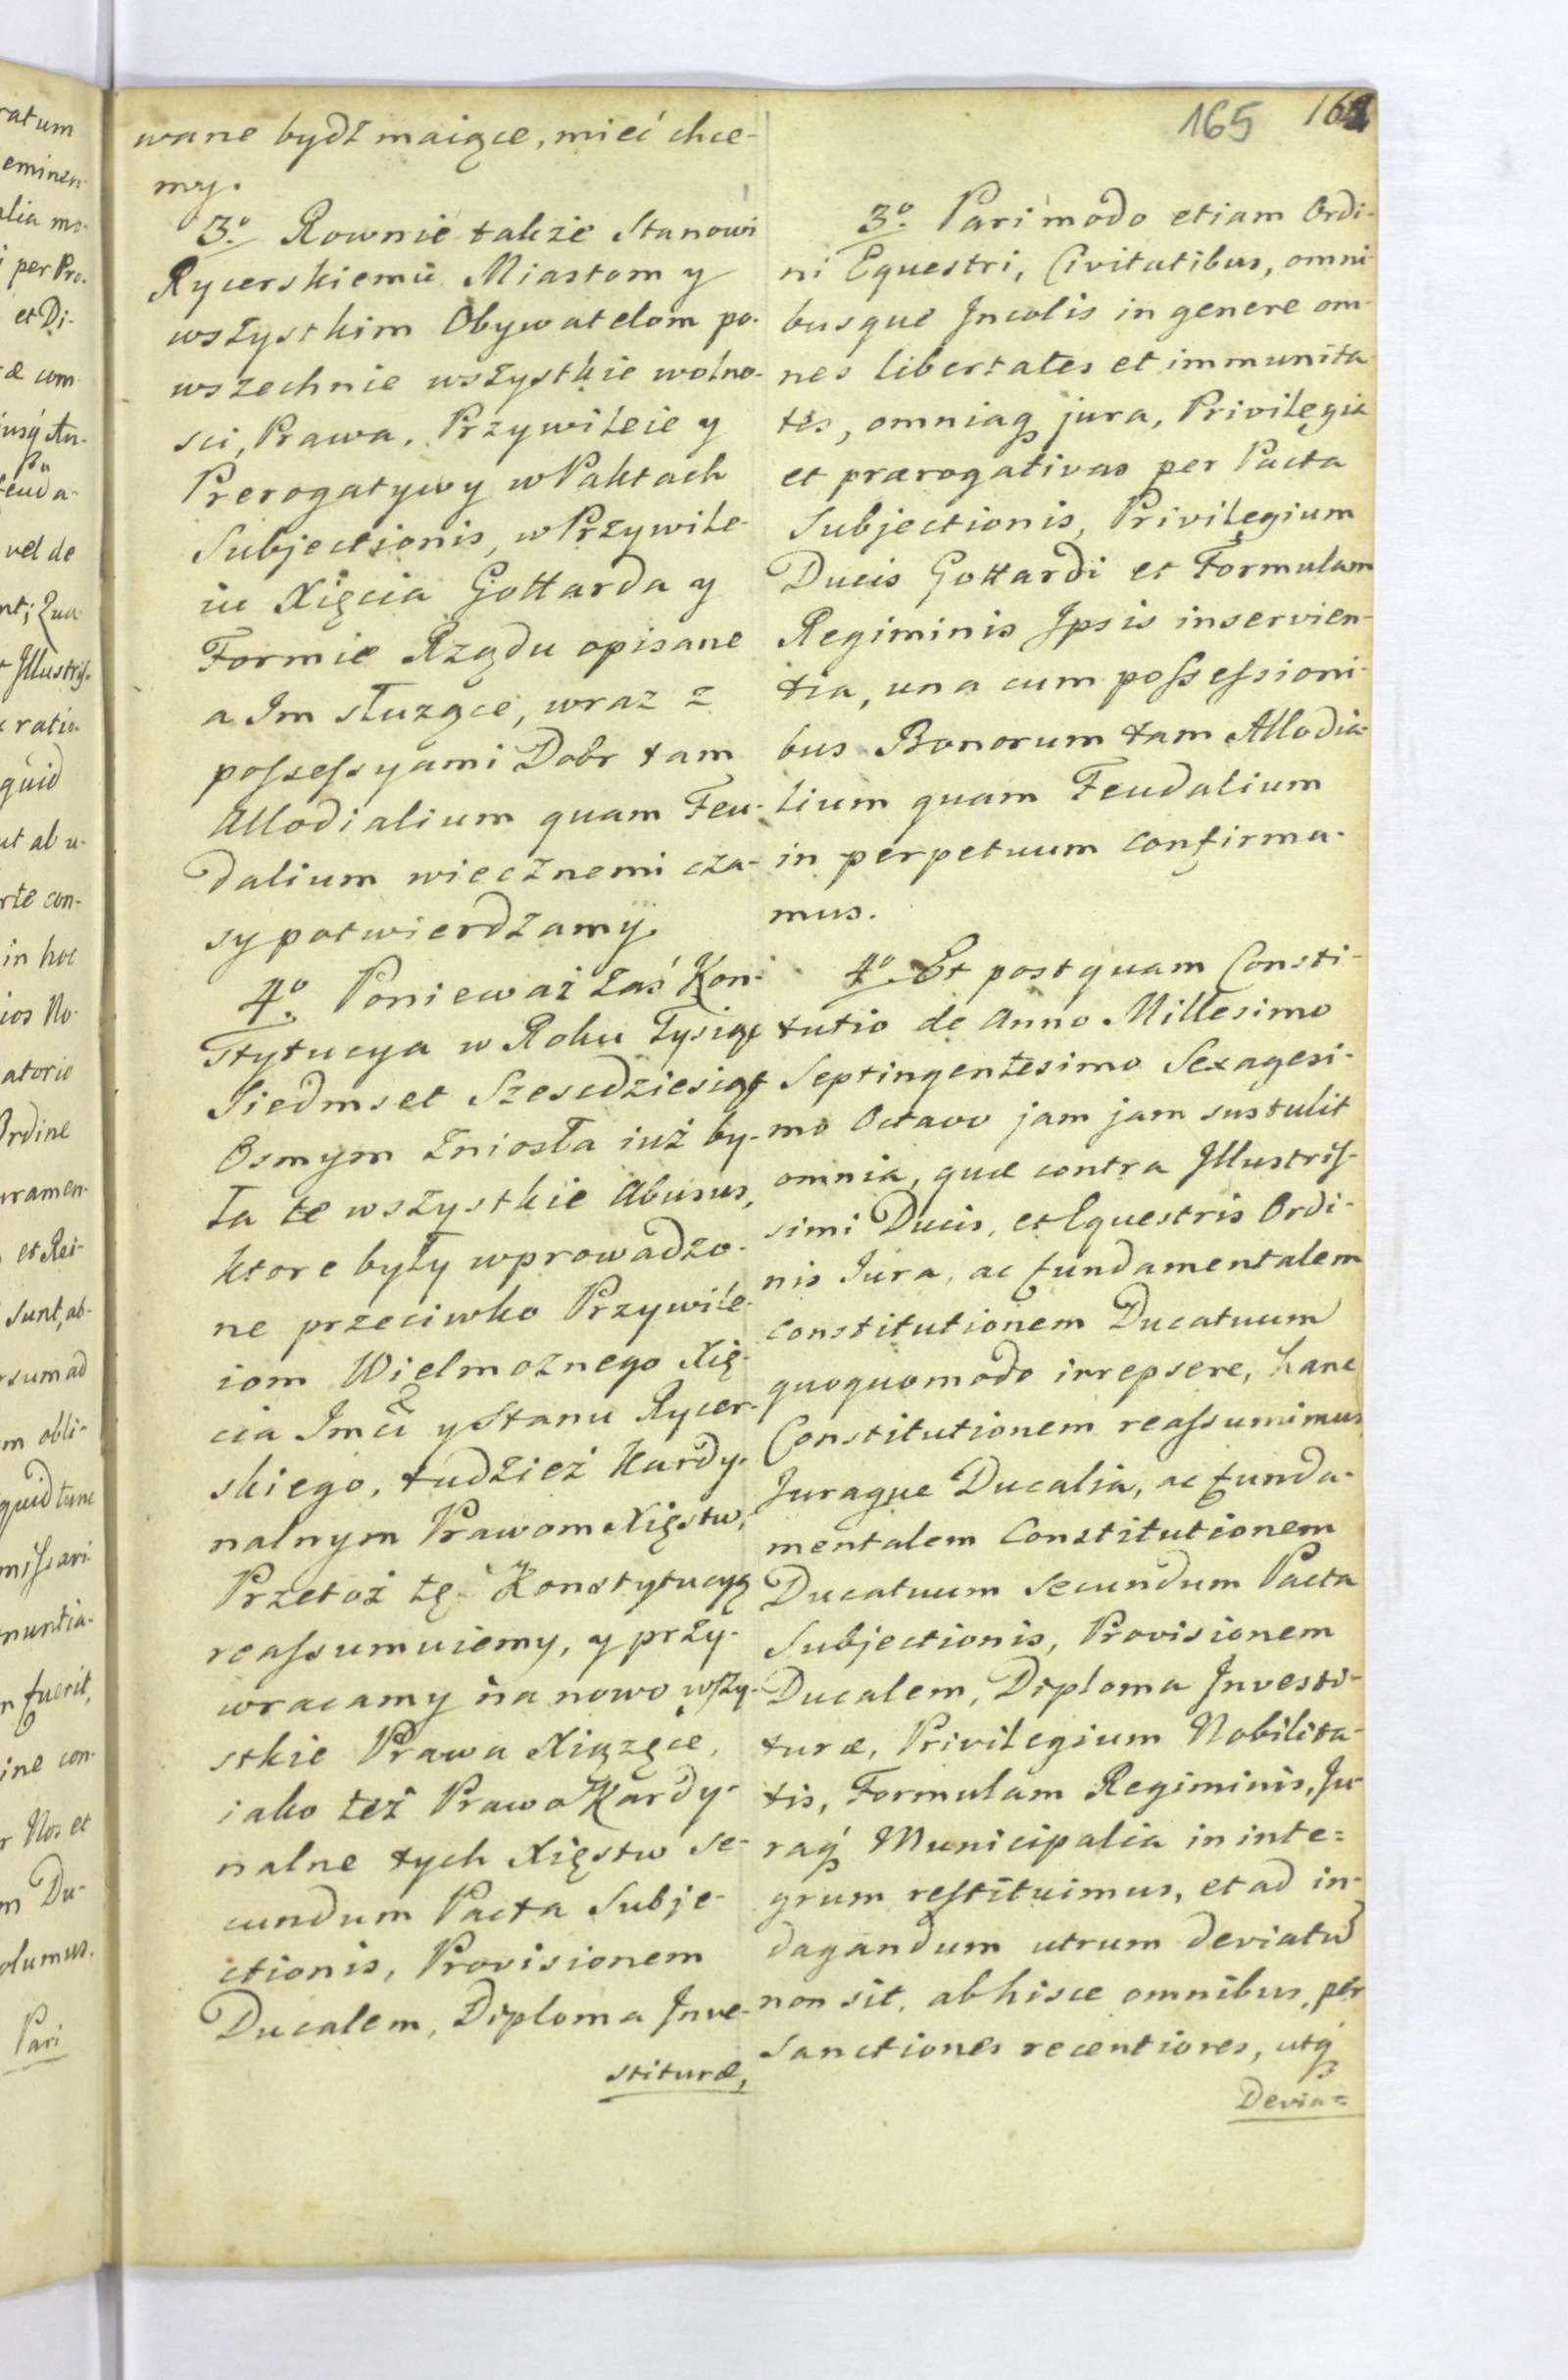 165 162
wane bydź maiące, mieć chce-
my.
3º. Rownie także Stanowi
Rycerskiemu Miastom y
wszystkim Obywatelom po-
wszechnie wszystkie wolno-
sci, Prawa, Przywileie y
Prerogatywy w Paktach
Subjectionis, w Przywile-
iu Xięcia Gottarda y
Formie Rządu opisane
a Im służące, wraz z
possessyami Dobr tam
Allodialium quam Feu-
dalium wiecznemi cza-
sy potwierdzamy.
4º. Ponieważ zaś Kon-
stytucya w Roku Tysiąc
Siedmset Szescdziesiąt
Osmym zniosła iuż by-
ła te wszystkie Abusus,
ktore były wprowadzo-
ne przeciwko Przywile-
iom Wielmożnego Xię-
cia Imci y Stanu Rycer-
skiego, tudzież Kardy-
nalnym Prawom Xięstw,
Przetoż tę Konstytucyą
reassumuiemy, y przy-
wracamy na nowo wszy-
stkie Prawa Xiążęce,
iako też Prawa Kardy-
nalne tych Xięstw se-
cundum Pacta Subje-
ctionis, Provisionem
Ducalem, Diploma Inve-
stituræ,
3º. Pari modo etiam Ordi-
ni Equestri, Civitatibus, omni-
busque Incolis in genere om-
nes libertates et immunita-
tes, omniaq jura, Privilegia
et prærogativas per Pacta
Subjectionis, Privilegium
Ducis Gottardi et Formulam
Regiminis Ipsis inservien-
tia, una cum possessioni-
bus Bonorum tam Allodia-
lium quam Feudalium
in perpetuum confirma-
mus.
4º. Et postquam Consti-
tutio de Anno Millesimo
Septingentesimo Sexagesi-
mo Octavo jam jam sustulit
omnia, quæ contra Illustris-
simi Ducis, et Equestris Ordi-
nis Jura, ac fundamentalem
constitutionem Ducatuum
quoquomodo irrepsere, hanc
Constitutionem reassumimus
Juraque Ducalia, ac funda-
mentalem Constitutionem
Ducatuum secundum Pacta
Subjectionis, Provisionem
Ducalem, Diploma Investi-
turæ, Privilegium Nobilita-
tis, Formulam Regiminis, Ju-
raq Municipalia in inte=
grum restituimus, et ad in-
dagandum utrum deviatū
non sit, ab hisce omnibus, per
Sanctiones recentiores, utq
Devia=
ratum
eminen-
alia mo-
i per Pro-
et Di-
vel de
quid
ut ab u-
rte con-
in hoc
ios No-
atorio
Ordine
uramen-
et Rei-
sunt, ab-
rsum ad
m obli-
quid tunc
missari
nuntia-
n fuerit,
ine con-
r Nos et
m Du-
olumus.
Pari